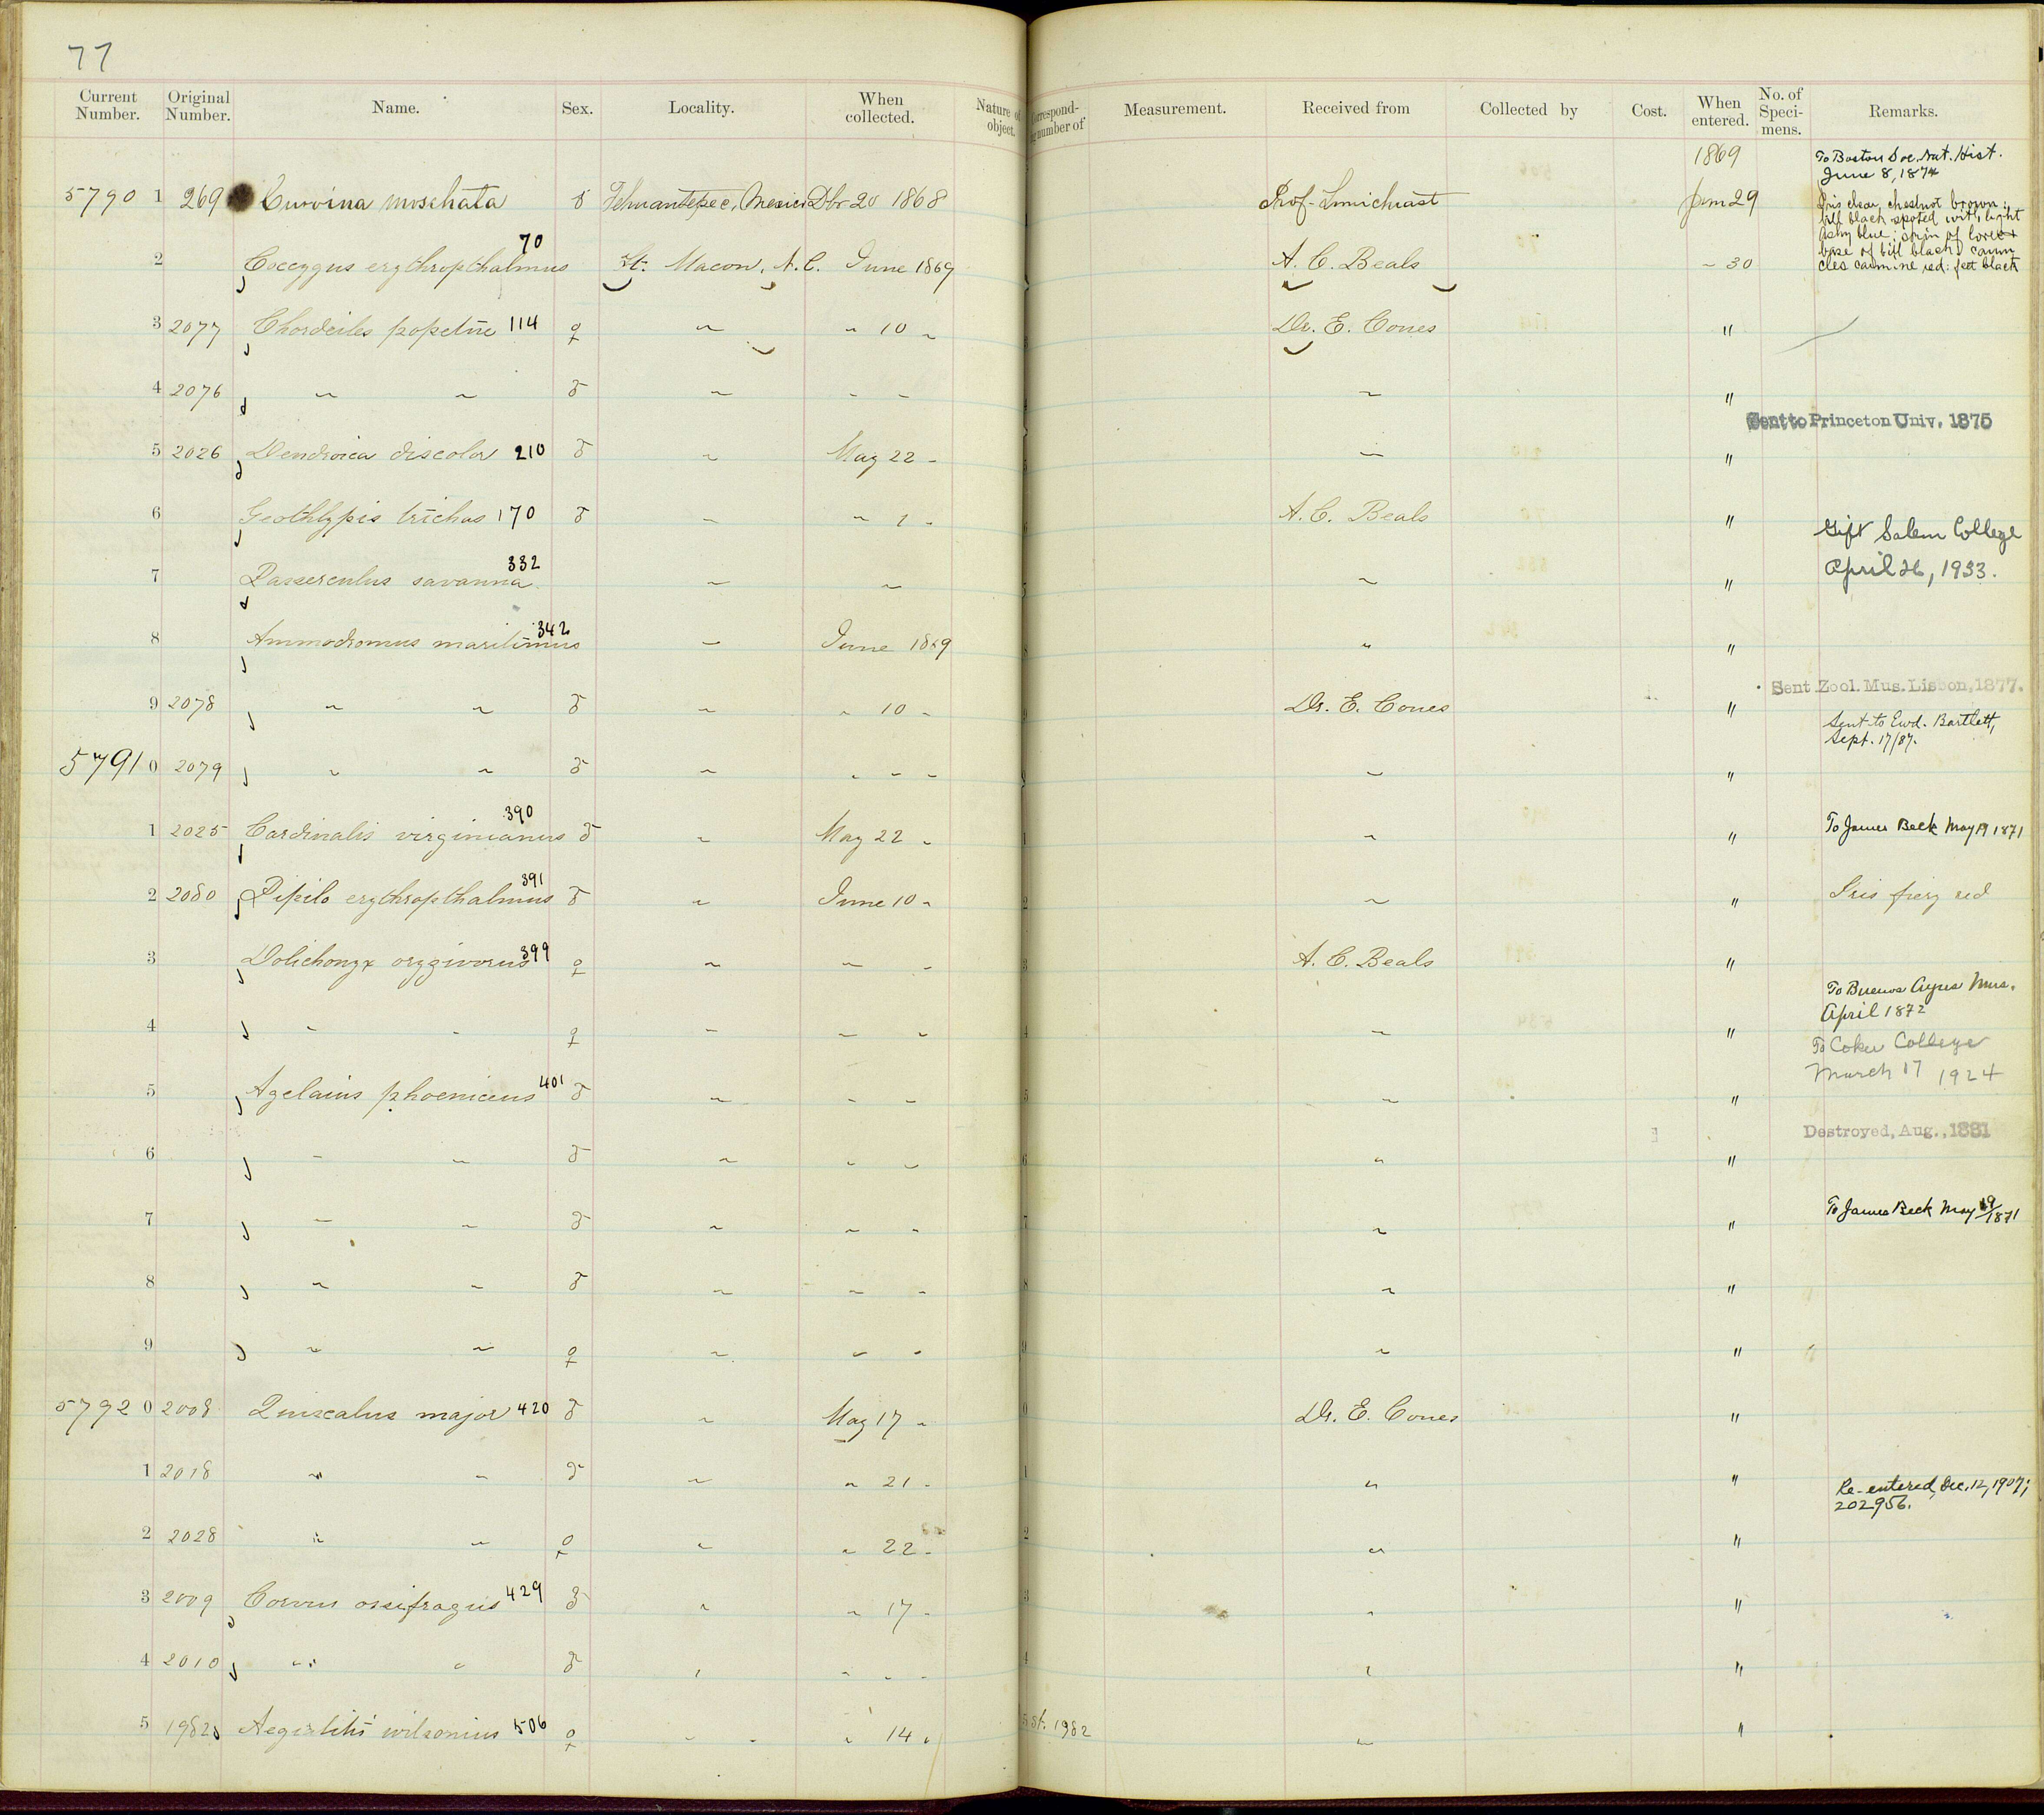 77
Current Number. Original Number. Name. Sex. Locality. When collected. Nature of object. Correspond- number of Measurement. Received from Collected by Cost. When entered. No. of Speci- mens. Remarks.
1869 To Boston Soc. Nat. Hist.
June 8, 1874
5790 1 269 moschata ♂ Tehuantepec, Mexico Dbr 20 1868 Prof. Sumichrast 29
Iris clear, chestnut brown;
bill black spotted with light
ashy blue; skin of lores +
base of bill black; carun
cles carmine red: feet black
2 Coccygus erythropthalmus 70 Ft. Macon, N.C. June 1869 A. C. Beals ~ 30
3 2077 Chordeiles popetue 114 ♀ ~ ~ 10 ~ Dr. E. Coues "
4 2076 ~ ~ ♂ ~ - - ~ "
Sent to Princeton Univ. 1875
5 2026 Dendroica discolor 210 ♂ ~ May 22 - ~ "
6 Geothlypis trichas 170 ♂ ~ ~ 1 - A. C. Beals "
Gift Salem College
April 26, 1933.
7 Passerculus savanna 332 ~ ~ ~ "
8 Ammodromus maritimus 342 ~ June 1869 " "
Sent Zool. Mus. Lisbon, 1877.
9 2078 ~ ~ ♂ ~ ~ 10 - Dr. E. Coues "
Sent to Ewd. Bartlett,
Sept. 17/87.
5791 0 2079 ~ ~ ♂ ~ - - - ~ "
1 2025 Cardinalis virginianus 390 ♂ ~ May 22 - ~ " To James Beck May 19 1871
2 2080 Pipilo erythropthalmus 391 ♂ ~ June 10 - ~ " Iris fiery red
3 Dolichonyx oryzivorus 399 ♀ ~ ~ - A. C. Beals "
To Buenos Ayres Mus.
April 1872
4 - - ♀ ~ ~ - ~ "
To Coker College
March 17 1924
5 Agelaius phoeniceus 401 ♂ ~ - - ~ "
Destroyed, Aug., 1881
6 - ~ ♂ ~ - ~ " "
7 ~ ~ ♂ ~ ~ - ~ " To James Beck May 19/1871
8 ~ ~ ♂ ~ ~ - ~ "
9 ~ ~ ♀ ~ ~ - ~ "
5792 0 2008 Quiscalus major 420 ♂ ~ May 17 - Dr. E. Coues "
1 2018 " ~ ♂ ~ " 21 - " "
Re-entered, Dec. 12, 1907;
202956.
2 2028 " ~ ♀ ~ " 22 - " "
3 2009 Corvus ossifragus 429 ♂ ~ ~ 17 - - "
4 2010 " " ♂ - - - - - "
5 1982 Aegialitis wilsonius 506 ♀ - - - 14 - St. 1982 ~ "